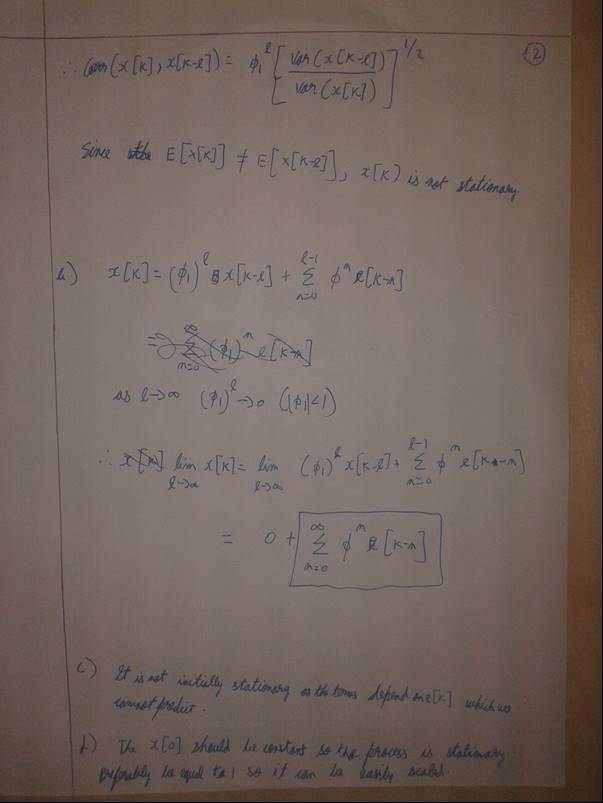 ②
∴ Corr(x[k], x[k-l]) = ϕ₁^l [ var(x[k-l]) / var(x[k]) ]^1/2
Since E[x[k]] ≠ E[x[k-l]], x[k] is not stationary.
b) x[k] = (ϕ₁)^l x[k-l] + Σ_{n=0}^{l-1} ϕ^n e[k-n]
= Σ_{n=0}^{∞} (ϕ₁)^n e[k-n]
as l→∞ (ϕ₁)^l → 0 (|ϕ₁|<1)
∴ x[k] lim_{l→∞} x[k] = lim_{l→∞} (ϕ₁)^l x[k-l] + Σ_{n=0}^{l-1} ϕ^n e[k-n]
= 0 + Σ_{n=0}^{∞} ϕ^n e[k-n]
c) It is not initially stationary as the terms depend on e[k] which we
cannot predict.
d) The x[0] should be constant so the process is stationary.
Preferably be equal to 1 so it can be easily scaled.